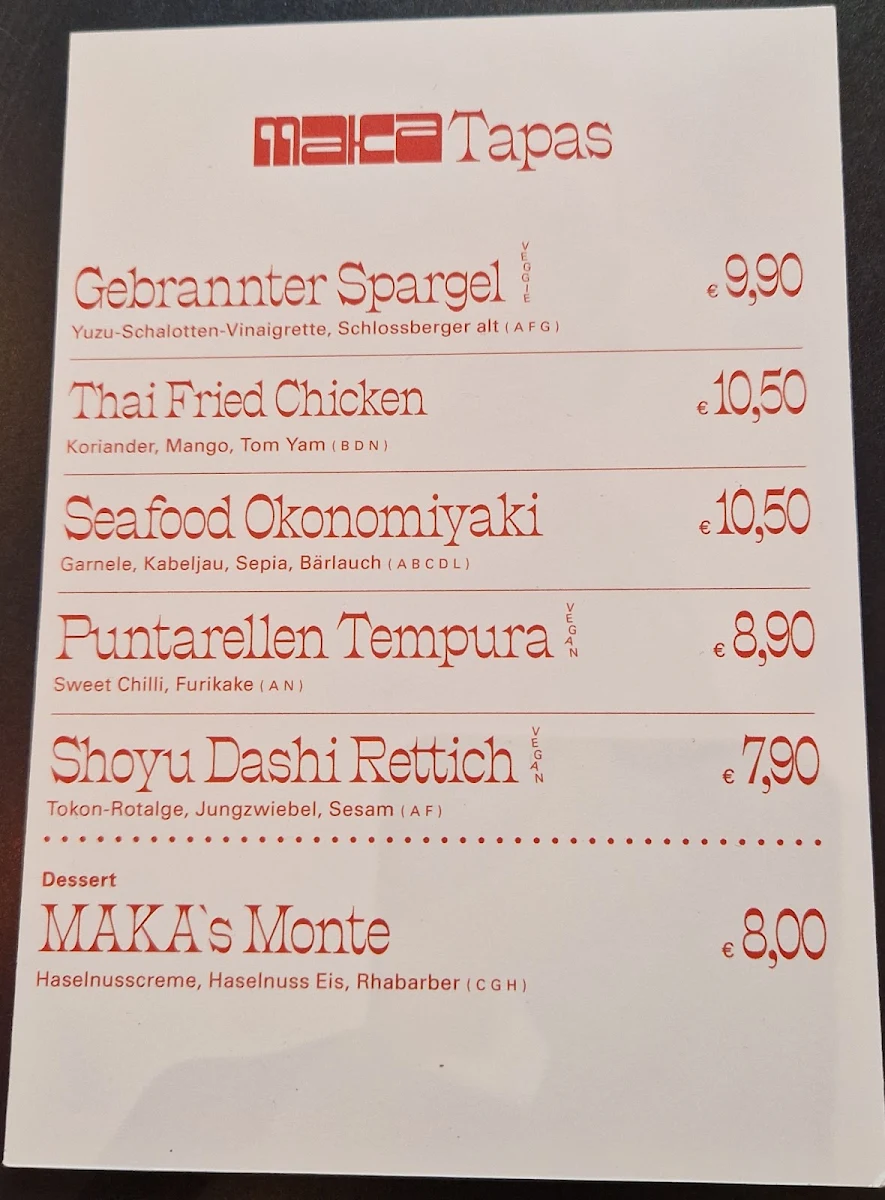 maka Tapas
Gebrannter Spargel VEGGIE € 9,90
Yuzu-Schalotten-Vinaigrette, Schlossberger alt (AFG)
Thai Fried Chicken € 10,50
Koriander, Mango, Tom Yam (BDN)
Seafood Okonomiyaki € 10,50
Garnele, Kabeljau, Sepia, Bärlauch (ABCDL)
Puntarellen Tempura VEGAN € 8,90
Sweet Chilli, Furikake (AN)
Shoyu Dashi Rettich VEGAN € 7,90
Tokon-Rotalge, Jungzwiebel, Sesam (AF)
Dessert
MAKA`s Monte € 8,00
Haselnusscreme, Haselnuss Eis, Rhabarber (CGH)